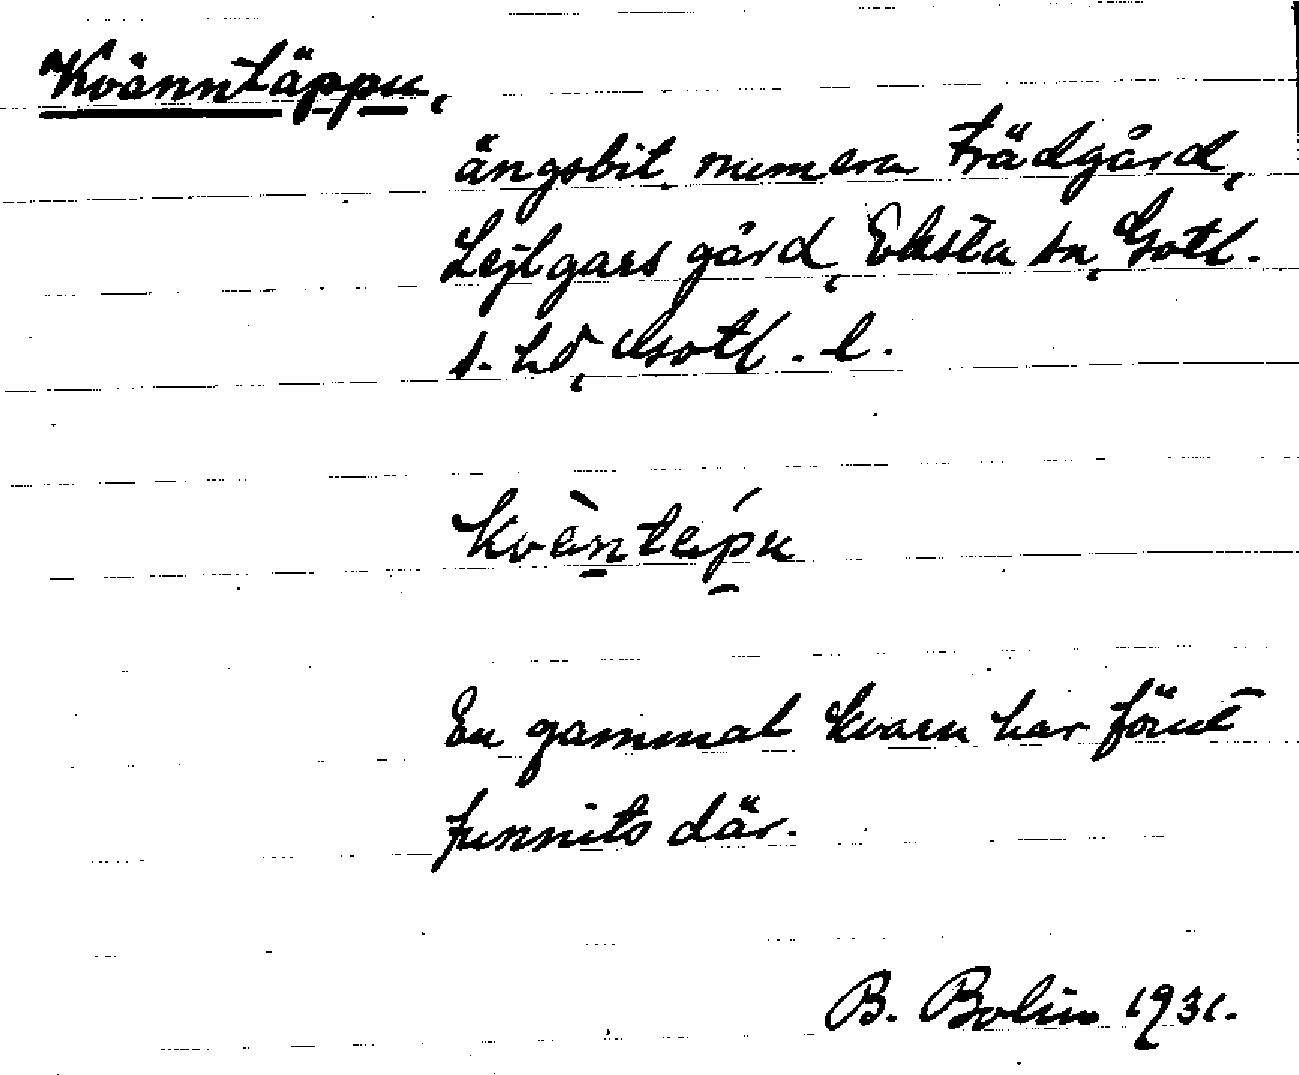 Kvänntäppu,
ängsbit numera trädgård,
Lejlgars gård, Eksta sn, Gotl.
s. hd, Gotl. l.
kvänntäpu
En gammal kvarn har förut
funnits där.
B. Bolin 1931.